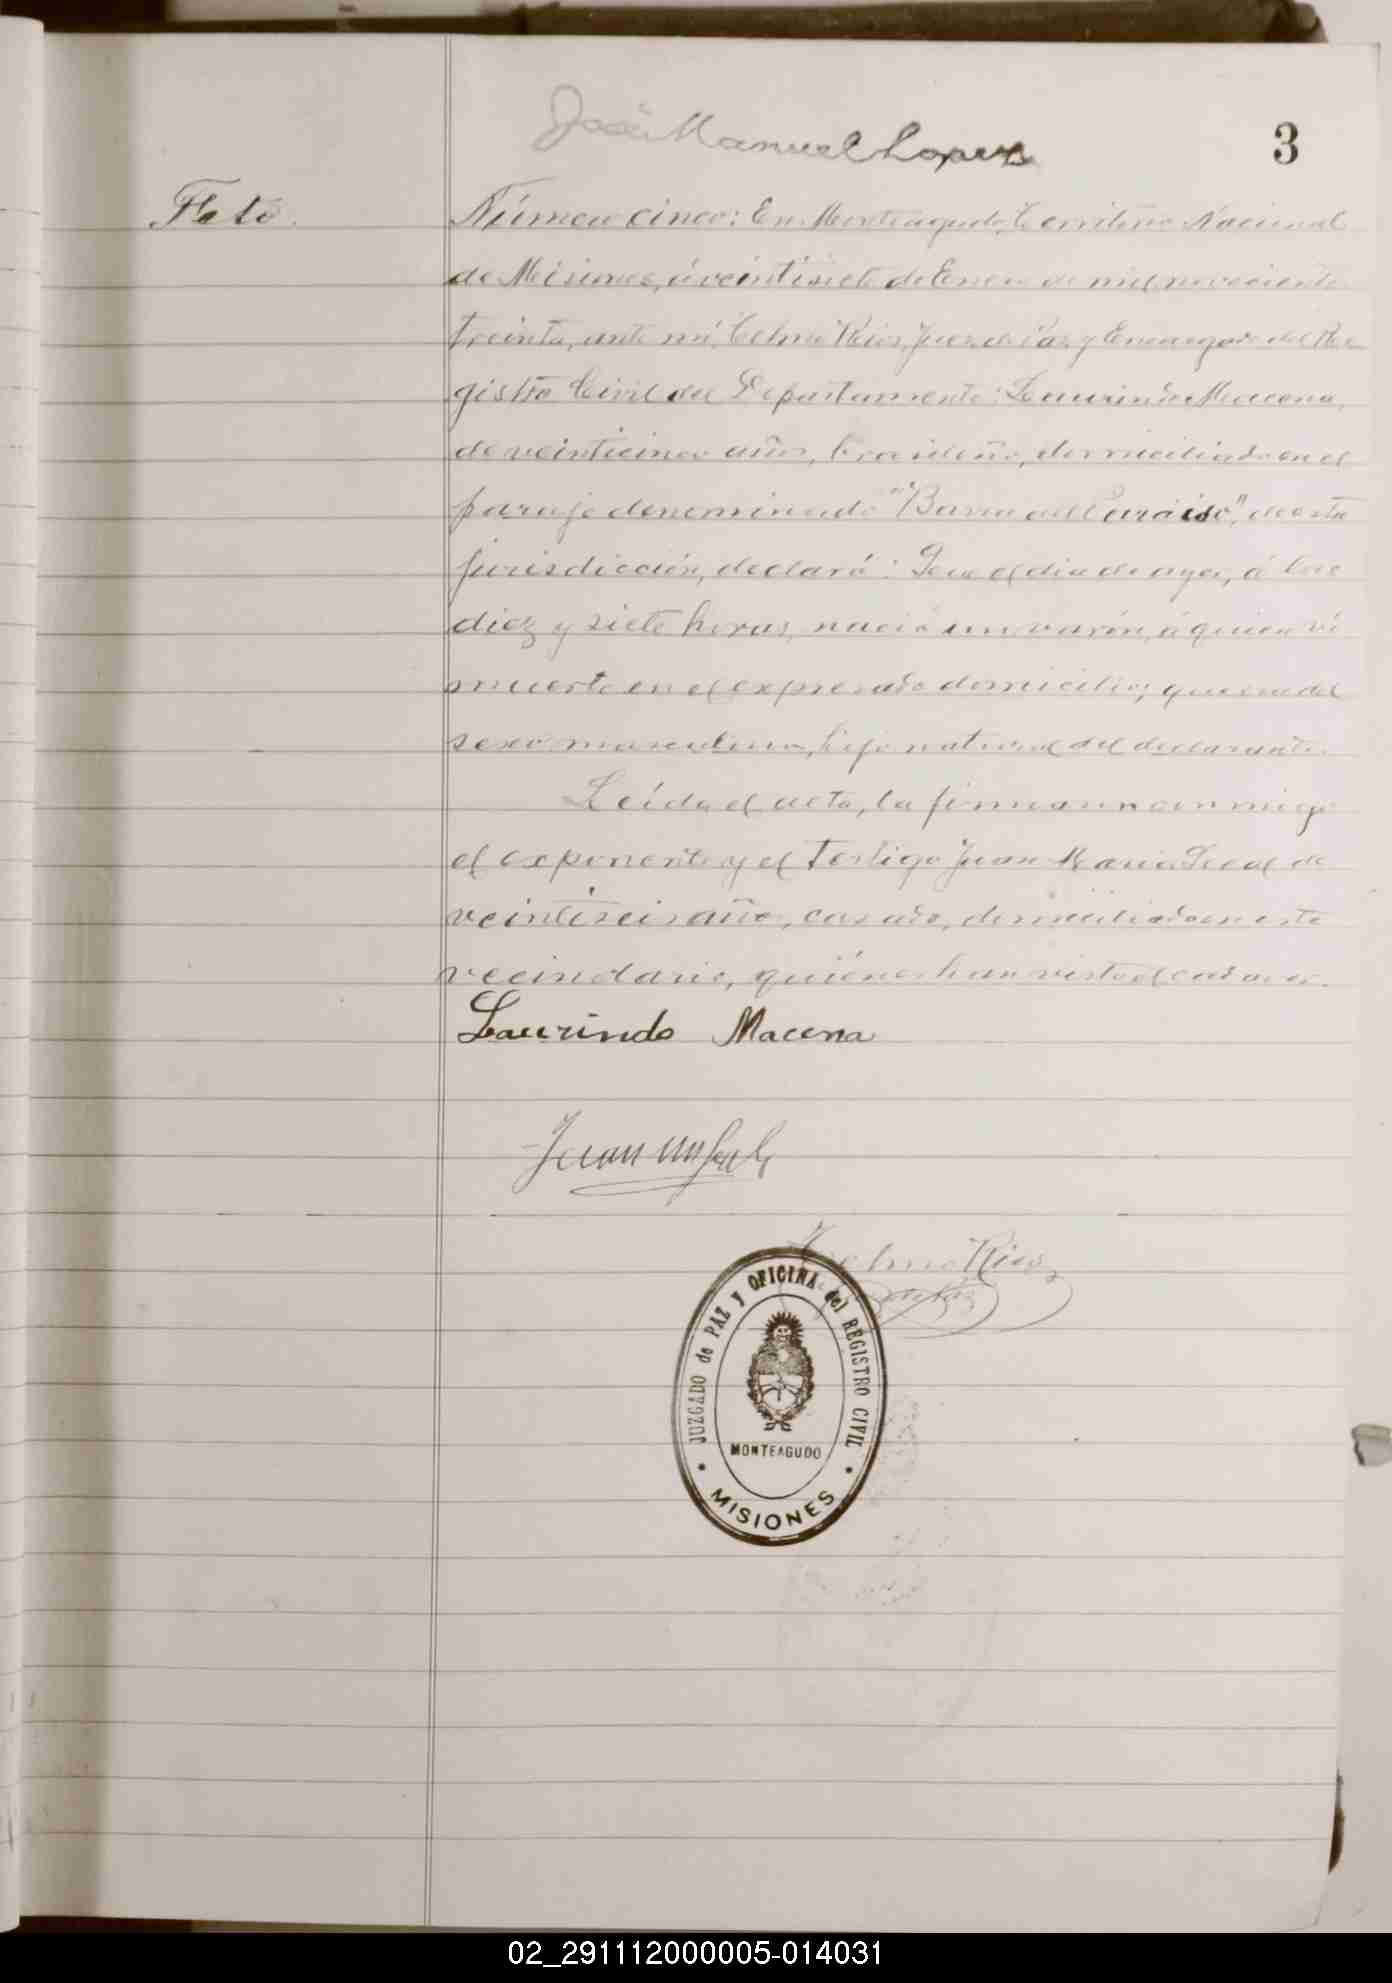 José Manuel Lopez
3
Feto.
Número cinco: En Monteagudo, Territorio Nacional
de Misiones, á veintisiete de Enero de mil novecientos
treinta, ante mí, Telmo Rios, Juez de Paz y Encargado del Re
gistro Civil del Departamento: Laurindo Macena,
de veinticinco años, brasileño, domiciliado en el
paraje denominado "Barra del Paraiso", de esta
jurisdicción, declaró: Que el dia de ayer, á las
diez y siete horas, nació un varón, á quien vi
muerto en el expresado domicilio; que era del
sexo masculino, hijo natural del declarante.
Leída el acta, la firmaron conmigo
el exponente y el testigo Juan María Leal de
veintiseis años, casado, domiciliado en este
vecindario, quiénes han visto el cadaver.
Laurindo Macena
Juan M Leal
Telmo Rios
JUZGADO de PAZ y OFICINA del REGISTRO CIVIL
MONTEAGUDO
MISIONES
02_291112000005-014031